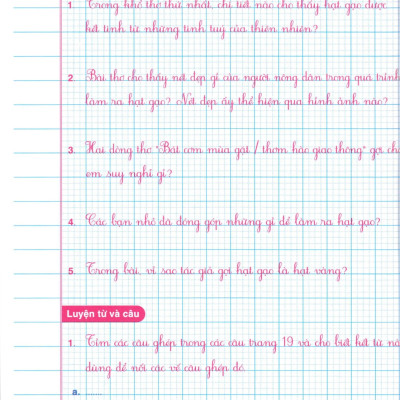 1. Trong khổ thơ thứ nhất, chi tiết nào cho thấy hạt gạo được
kết tinh từ những tinh tuý của thiên nhiên?
2. Bài thơ cho thấy nét đẹp gì của người nông dân trong quá trình
làm ra hạt gạo? Nét đẹp ấy thể hiện qua hình ảnh nào?
3. Hai dòng thơ "Bát cơm mùa gặt / thơm hào giao thông" gợi ch
em suy nghĩ gì?
4. Các bạn nhỏ đã đóng góp những gì để làm ra hạt gạo?
5. Trong bài, vì sao tác giả gọi hạt gạo là hạt vàng?
Luyện từ và câu
1. Tìm các câu ghép trong các câu trang 19 và cho biết kết từ nà
dùng để nối các vế câu ghép đó.
a. ......